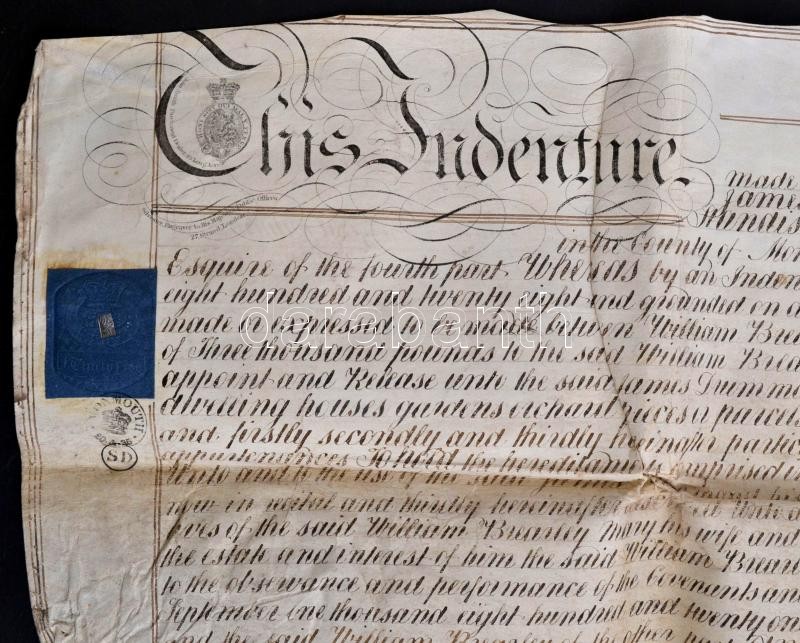 This Indenture.
made
James
in the County of Mon
Esquire of the fourth part Whereas by an Inden
eight hundred and twenty eight and grounded on a
made or expressed to be made between William Brea
of Three thousand pounds to the said William Brea
appoint and Release unto the said James Drummo
dwelling houses gardens orchard pieces or parcels
and firstly secondly and thirdly hereinafter partic
appurtenances To hold the hereditaments comprised in
Unto and to the use of the said James
now in recital and thirdly Unto a
lives of the said William Brearley Mary his wife and
the estate and interest of him the said William Brear
to the observance and performance of the Covenants an
September one thousand eight hundred and twenty on
and the said William Brearley of the other
27, Strand, London
MONMOUTH
SD
darabanth